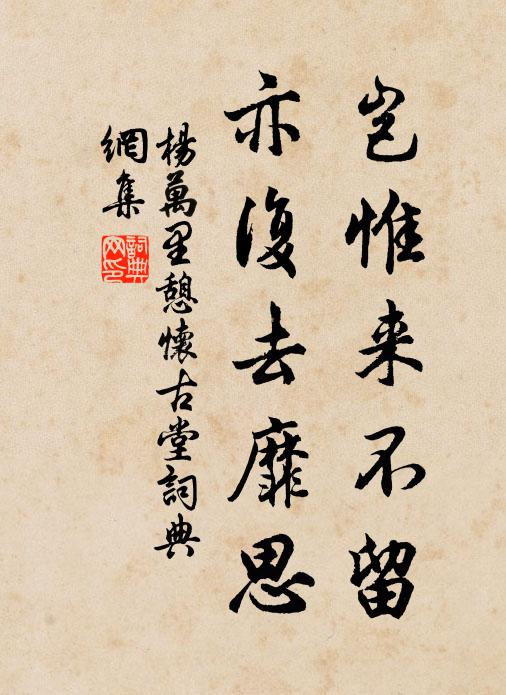 岂惟来不留
亦復去靡思
楊萬里憩懷古堂詞典
網集
詞典
网印